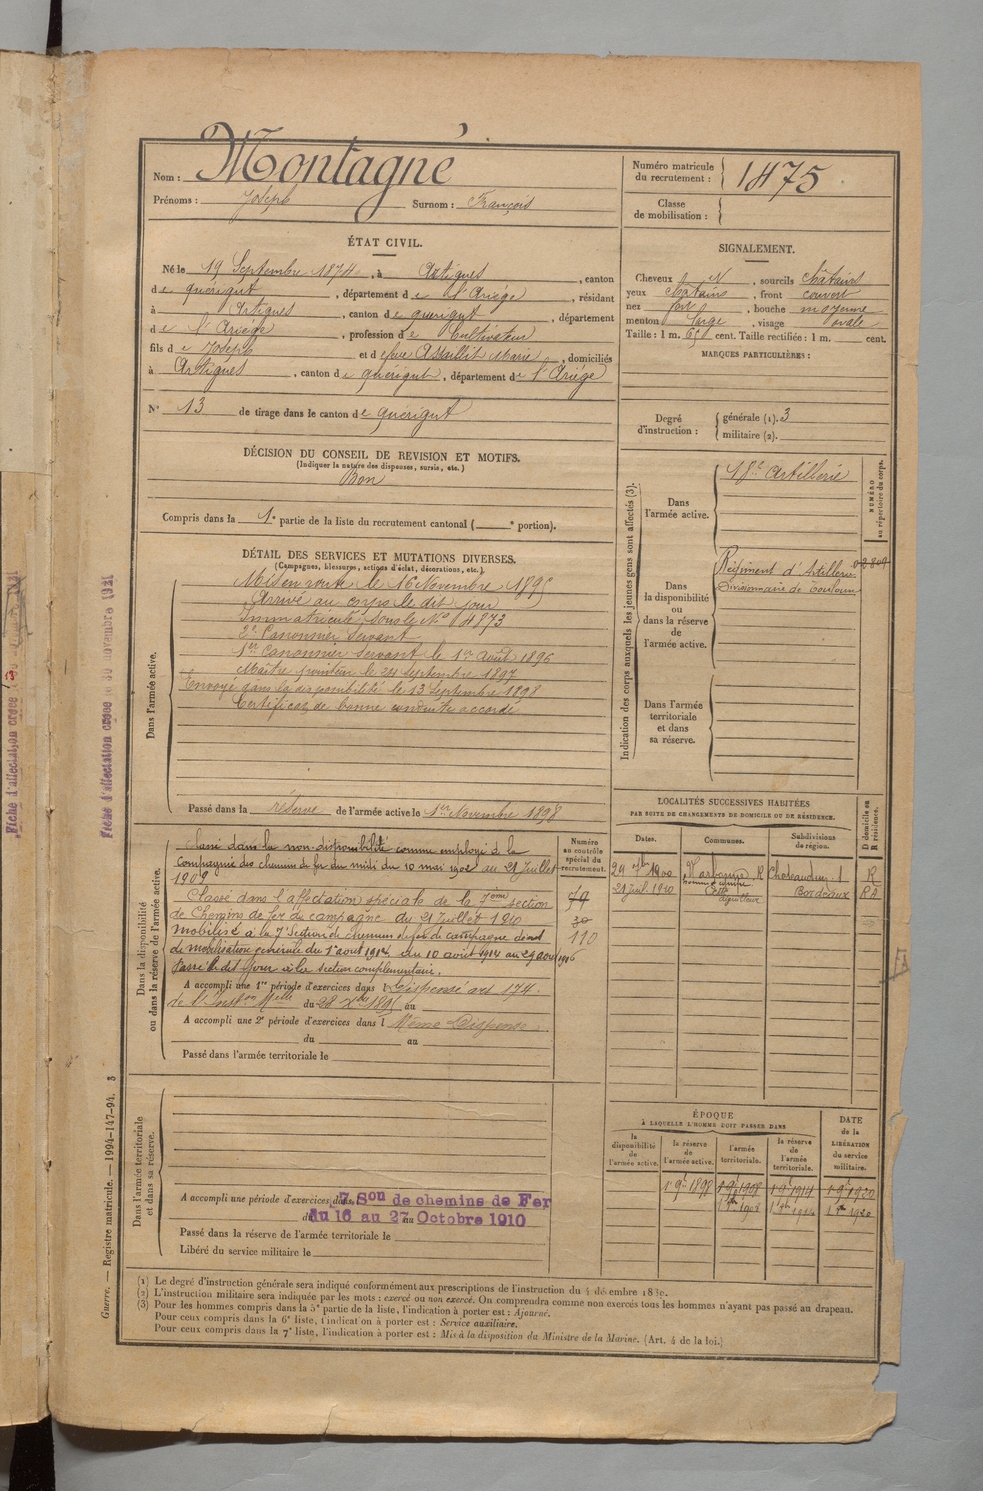 Nom : Montagné
Prénoms : Joseph Surnom : François
Numéro matricule du recrutement : 1475
Classe de mobilisation :
ÉTAT CIVIL.
Né le 19 Septembre 1874, à Artigues, canton
de Quérigut, département de l'Ariège, résidant
à Artigues, canton de Quérigut, département
de l'Ariège, profession de Cultivateur
fils de Joseph et de feue Assaillit Marie, domiciliés
à Artigues, canton de Quérigut, département de l'Ariège
N° 13 de tirage dans le canton de Quérigut
SIGNALEMENT.
Cheveux N, sourcils châtains
yeux châtains, front couvert
nez fort, bouche moyenne
menton large, visage ovale
Taille : 1 m. cent. Taille rectifiée : 1 m. cent.
MARQUES PARTICULIÈRES :
Degré d'instruction : générale (1). 3
militaire (2).
DÉCISION DU CONSEIL DE REVISION ET MOTIFS.
(Indiquer la nature des dispenses, sursis, etc.)
Bon
Compris dans la 1e partie de la liste du recrutement cantonal ( e portion).
DÉTAIL DES SERVICES ET MUTATIONS DIVERSES.
(Campagnes, blessures, actions d'éclat, décorations, etc.)
Dans l'armée active.
Mis en route le 16 Novembre 1895
Arrivé au corps le dit jour
Immatriculé sous le N°
2e Canonnier Servant
1er Canonnier Servant le 1er Août 1896
Maître pointeur le 24 Septembre 1897
Envoyé dans la disponibilité le 13 Septembre 1898
Certificat de bonne conduite accordé
Passé dans la réserve de l'armée active le 1er Novembre 1898
Indication des corps auxquels les jeunes gens sont affectés (3).
NUMÉRO au répertoire du corps.
Dans l'armée active.
18e Artillerie
Dans la disponibilité ou dans la réserve de l'armée active.
Régiment d'Artillerie
Divisionnaire de Toulouse
Dans l'armée territoriale et dans sa réserve.
LOCALITÉS SUCCESSIVES HABITÉES
PAR SUITE DE CHANGEMENTS DE DOMICILE OU DE RÉSIDENCE.
Dates. Communes. Subdivisions de région. D domicile ou R résidence.
29 1900 Narbonne R
21 Juil. 1910 Bordeaux RA
Dans la disponibilité ou dans la réserve de l'armée active.
Numéro au contrôle spécial du recrutement.
Classé dans la non-disponibilité comme employé à la
Compagnie des chemins de fer du midi du 10 mai 1902 au 21 Juillet
1909
Classé dans l'affectation spéciale de la 7ème section
de Chemins de fer de campagne du 21 Juillet 1910
Mobilisé à la 7e Section de chemins de fer de campagne décret
de mobilisation générale du 1er août 1914. du 10 août 1914 au 29 août 1916
Passé le dit jour à la section complémentaire.
79
30
110
A accompli une 1re période d'exercices dans l Dispensé art 174.
de l'Inst. on Melle du 28 Xbre 1895 au
A accompli une 2e période d'exercices dans l Même Dispense
du au
Passé dans l'armée territoriale le
Dans l'armée territoriale et dans sa réserve.
A accompli une période d'exercices dans 7e Son de chemins de Fer
du 16 au 27 Octobre 1910
Passé dans la réserve de l'armée territoriale le
Libéré du service militaire le
ÉPOQUE
À LAQUELLE L'HOMME DOIT PASSER DANS
la disponibilité de l'armée active. la réserve de l'armée active. l'armée territoriale. la réserve de l'armée territoriale.
DATE de la LIBÉRATION du service militaire.
1 9bre 1898 1 9bre 1908 1 9bre 1914 1 9bre 1920
1908 1914 1920
(1) Le degré d'instruction générale sera indiqué conformément aux prescriptions de l'instruction du 4 décembre 1889.
(2) L'instruction militaire sera indiquée par les mots : exercé ou non exercé. On comprendra comme non exercés tous les hommes n'ayant pas passé au drapeau.
(3) Pour les hommes compris dans la 5e partie de la liste, l'indication à porter est : Ajourné.
Pour ceux compris dans la 6e liste, l'indication à porter est : Service auxiliaire.
Pour ceux compris dans la 7e liste, l'indication à porter est : Mis à la disposition du Ministre de la Marine. (Art. 4 de la loi.)
Guerre. — Registre matricule. — 1994-147-94. 3
Fiche d'affectation créée le 30 novembre 1921
Fiche d'affectation créée